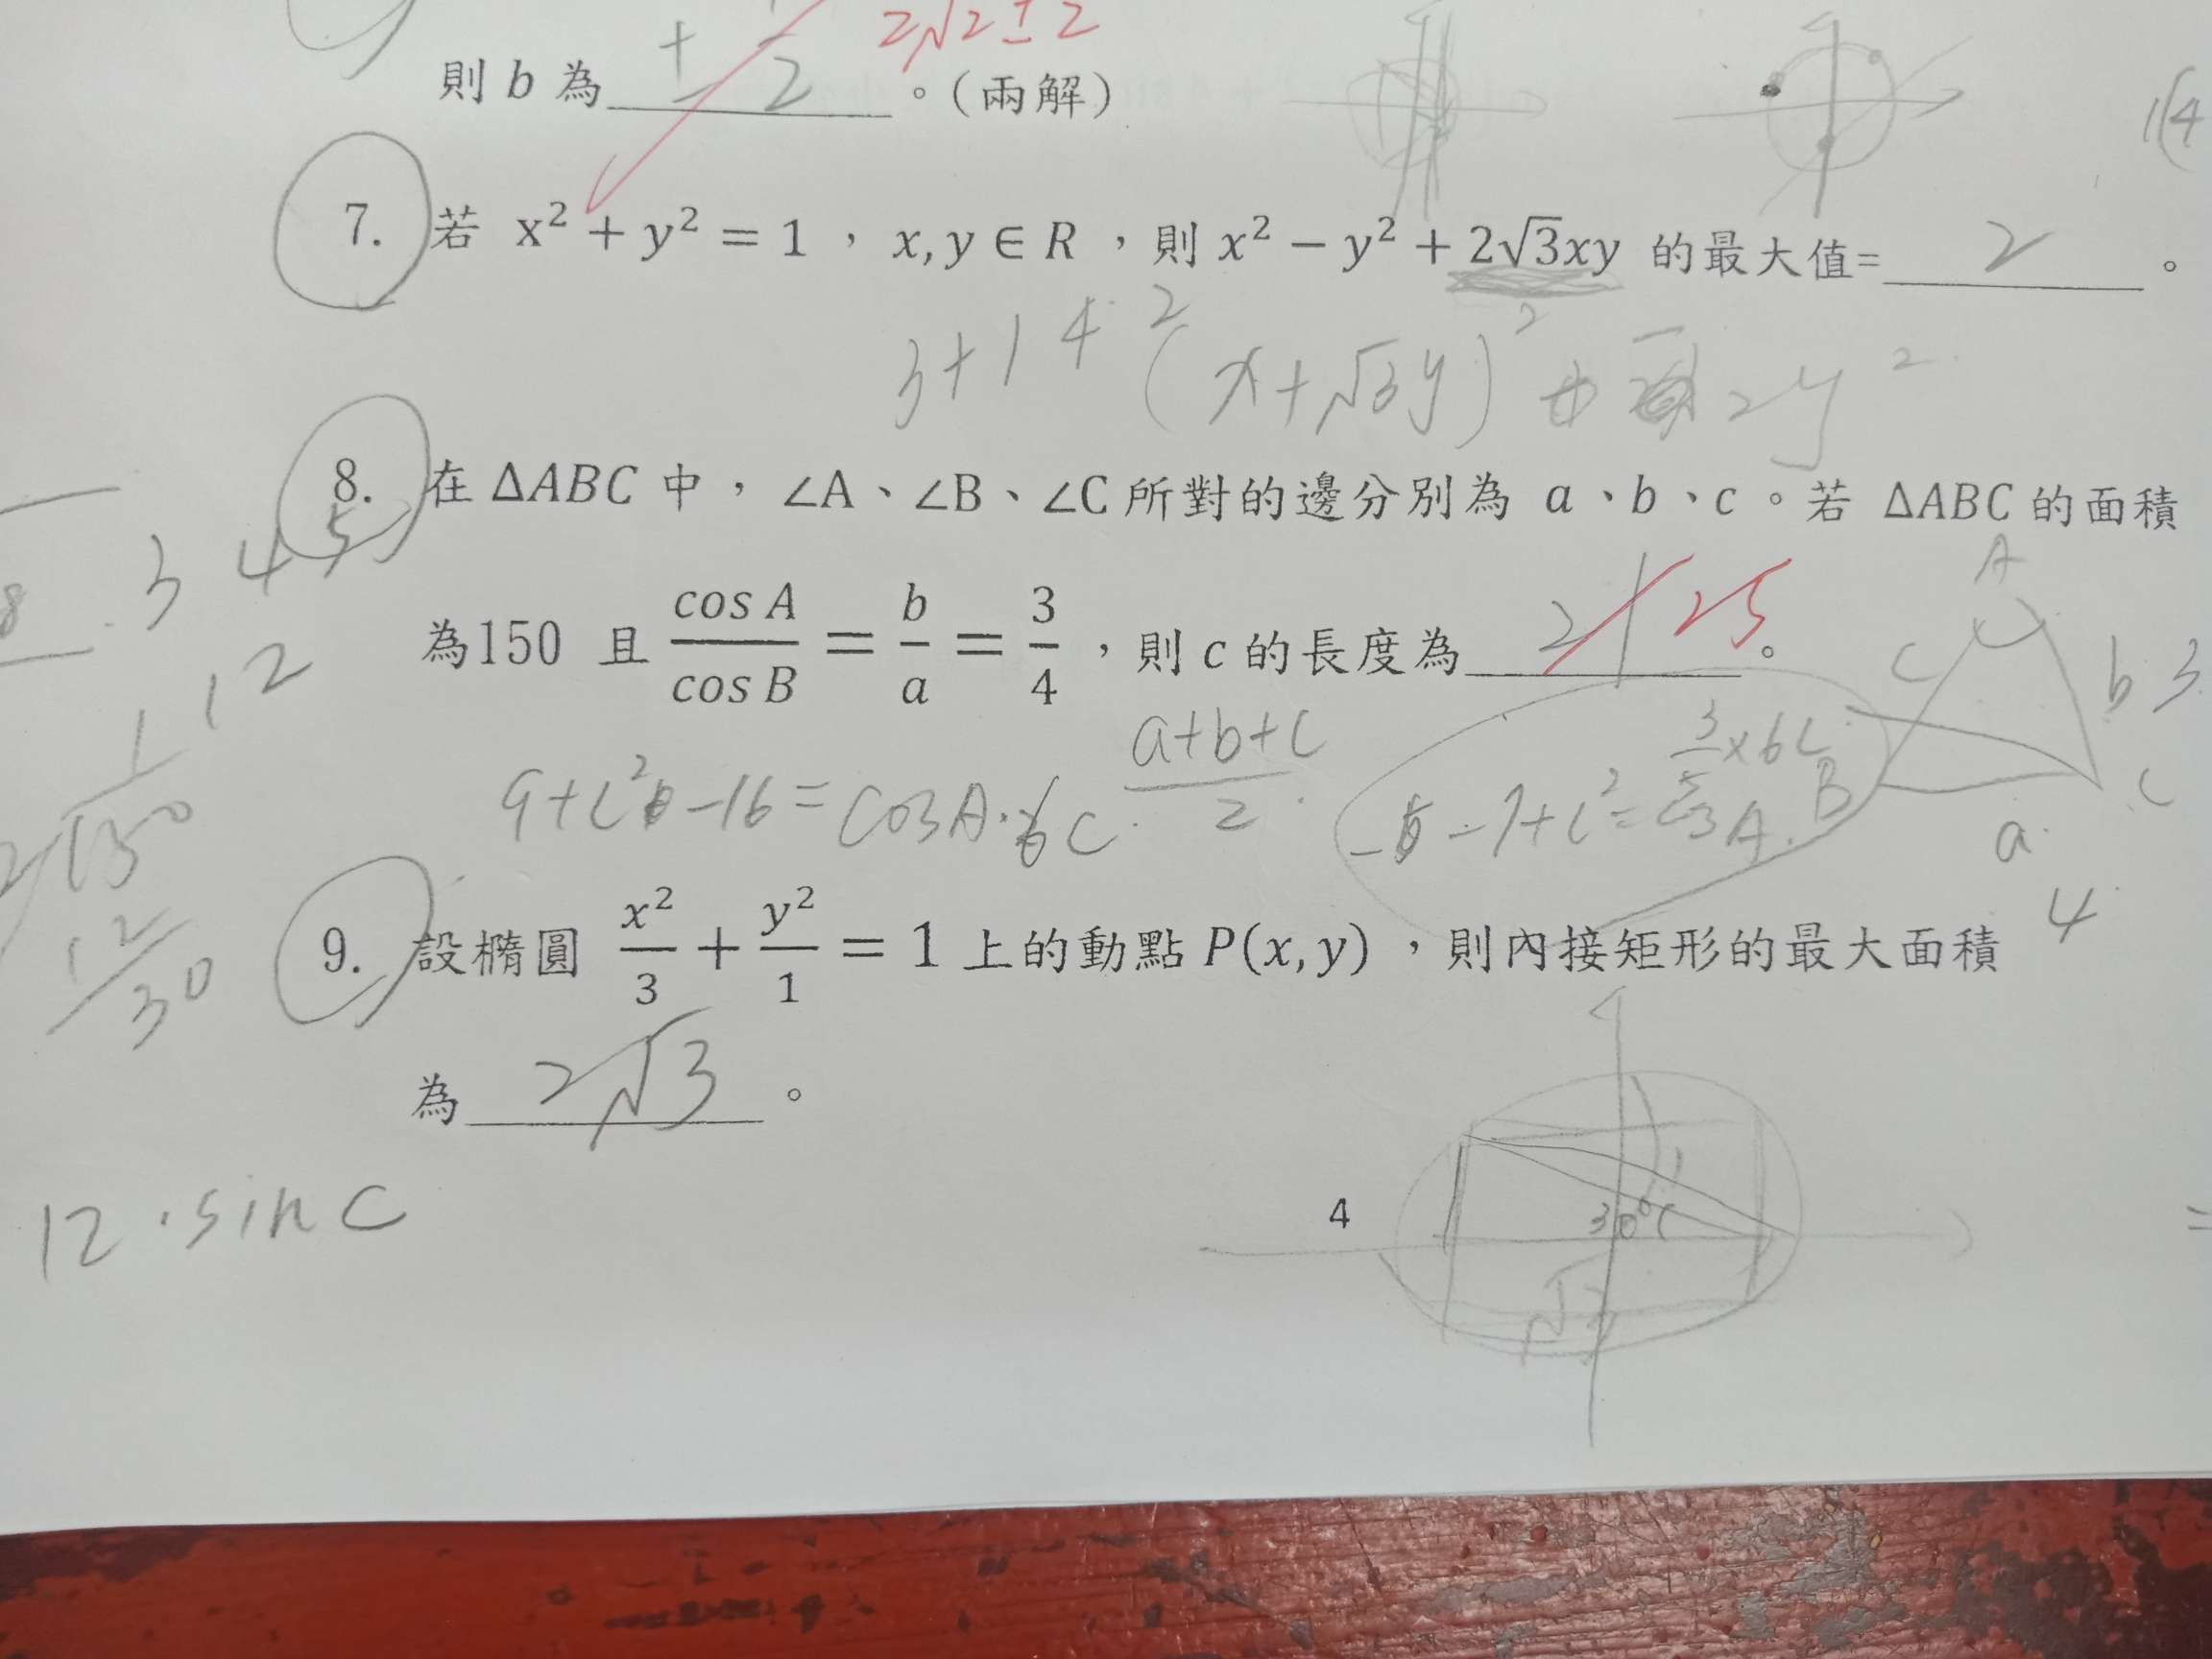 2√2 ± 2
則 b 為 ± 2 。(兩解)
7. 若 x² + y² = 1 , x, y ∈ R ,則 x² − y² + 2√3xy 的最大值= 2 。
3+1 4 2 (x+√3y)² 2y²
8. 在 ΔABC 中,∠A、∠B、∠C 所對的邊分別為 a、b、c。若 ΔABC 的面積
3 4 5
A
為150 且 cos A / cos B = b / a = 3 / 4 ,則 c 的長度為 21 25 。
c b 3
12
9+c²-16=cosA·6c a+b+c / 2 -7+c²= B C
a
4
1 / 150
12 / 30
9. 設橢圓 x²/3 + y²/1 = 1 上的動點 P(x, y) ,則內接矩形的最大面積
為 2√3 。
12·sin C
4
30°